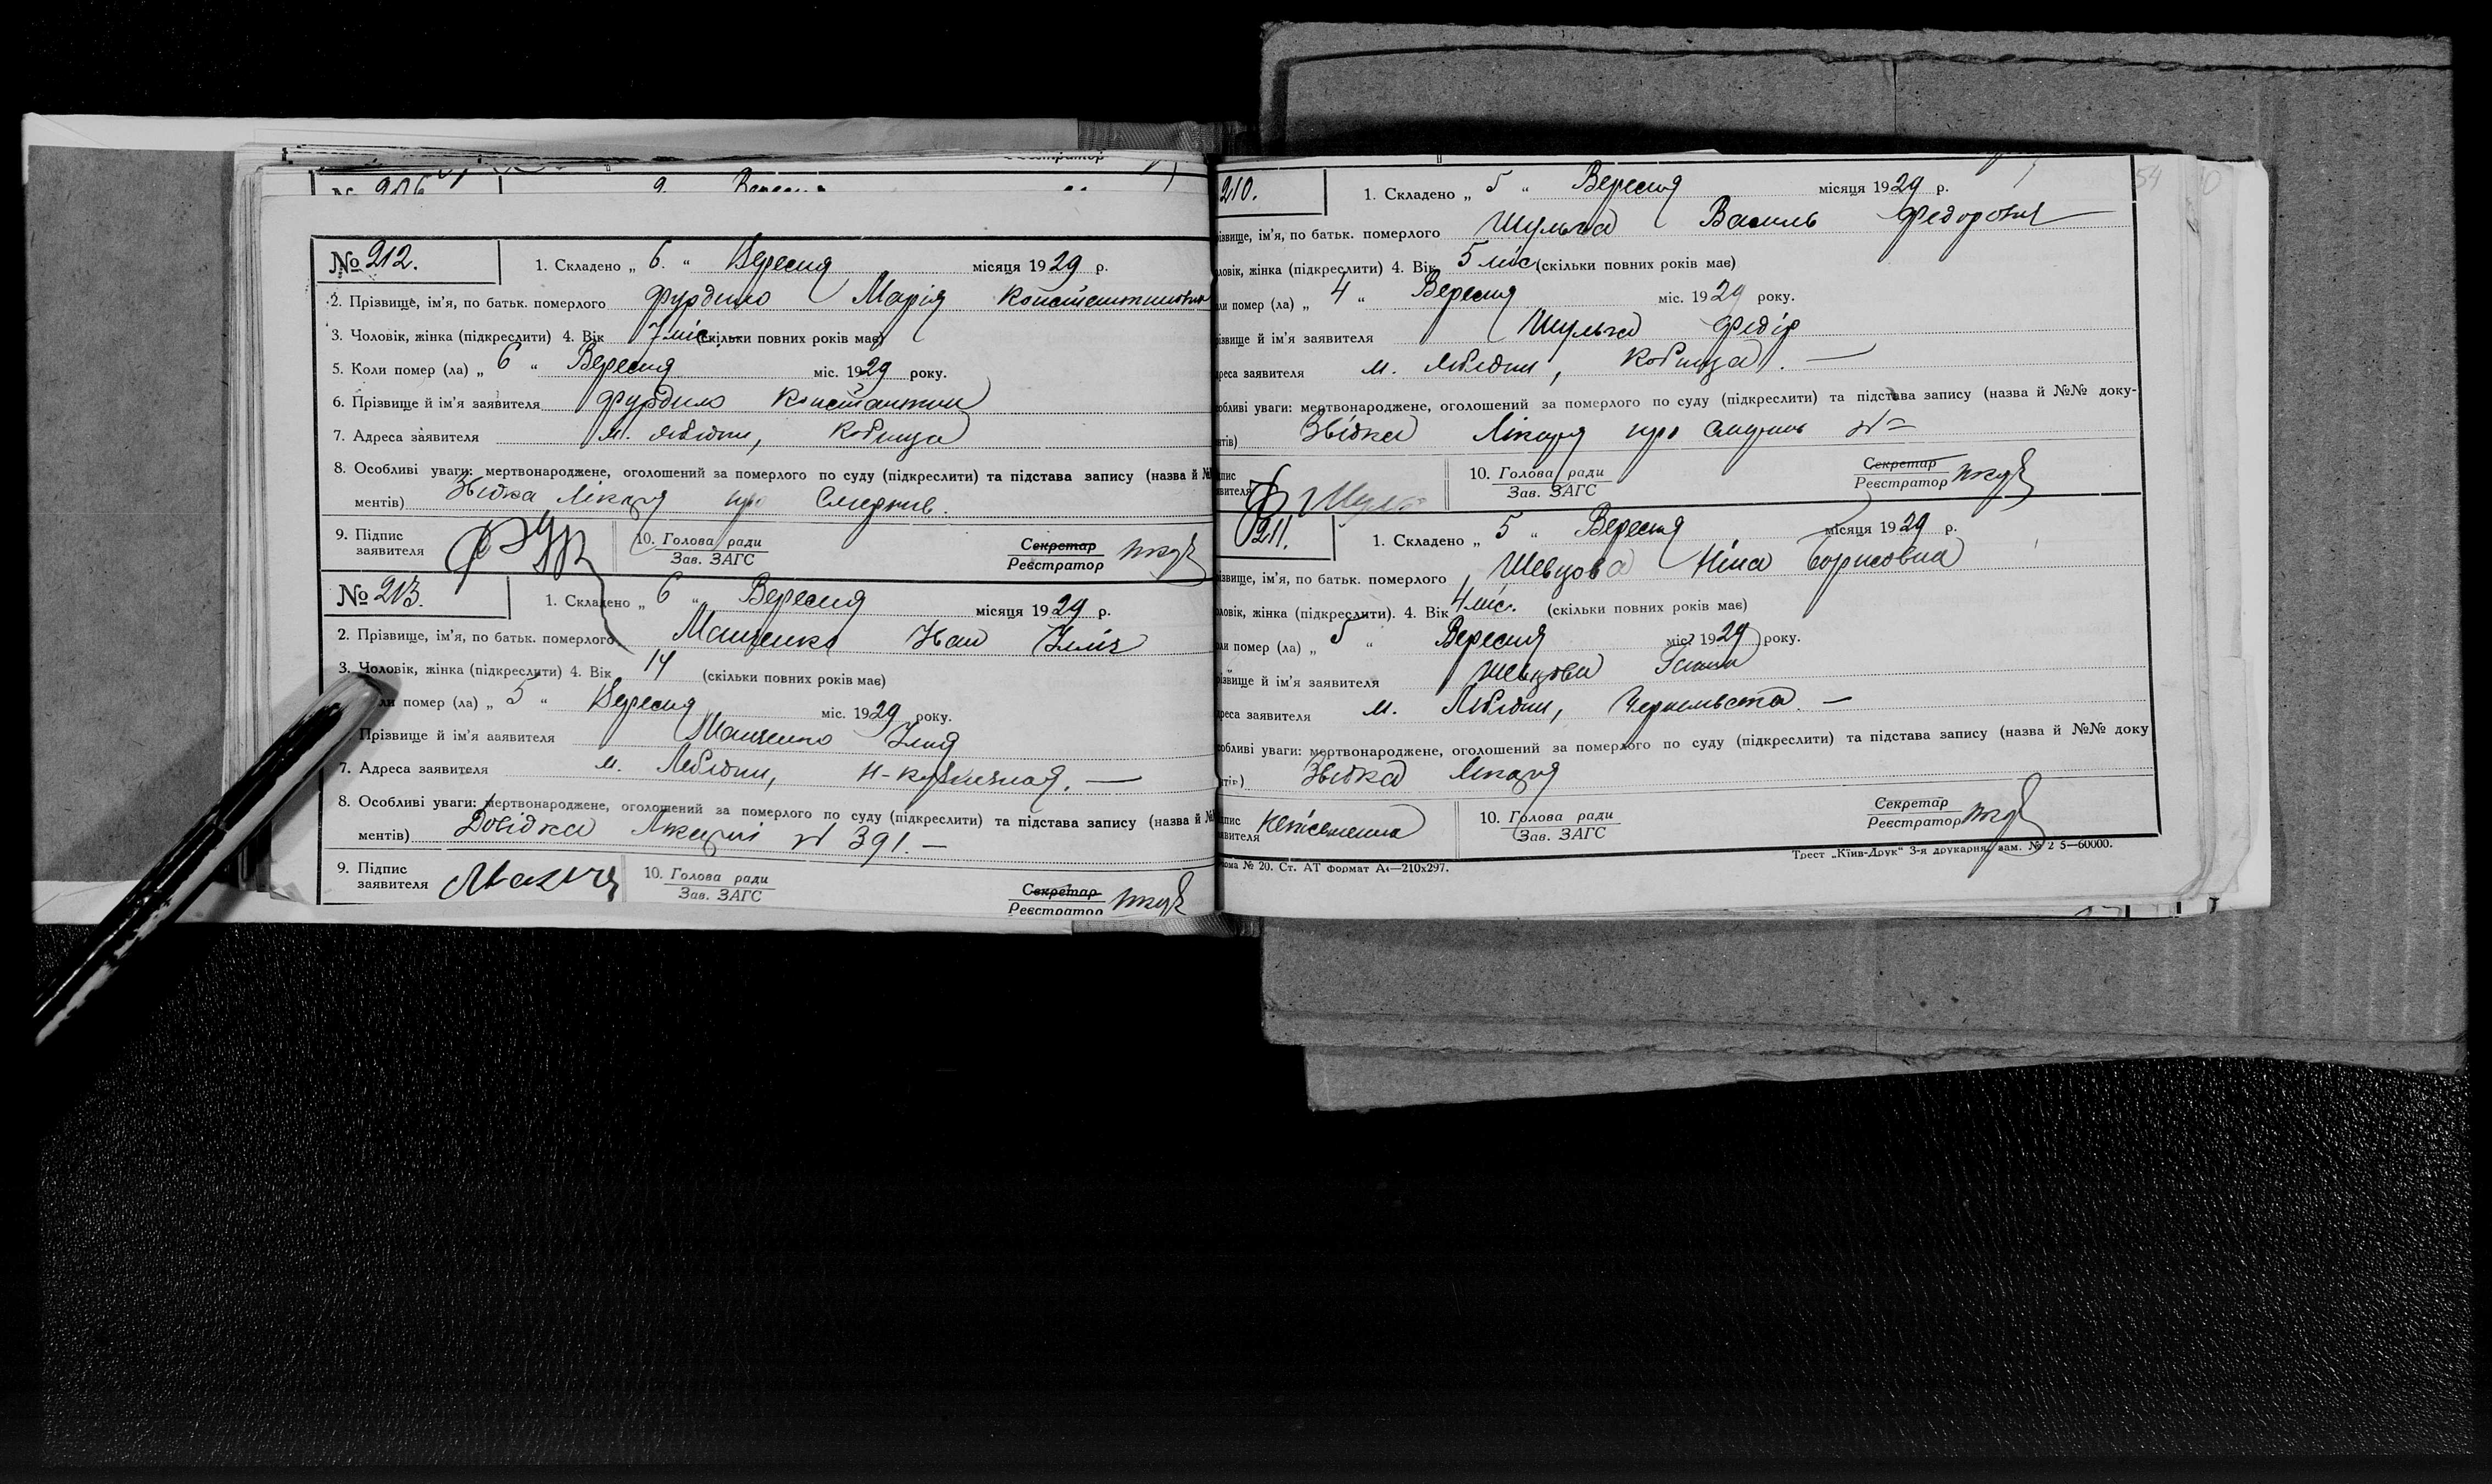 Реєстратор
№ 206
№ 212. 1. Складено „ 6. “ Вересня місяця 1929 р.
2. Прізвище, ім'я, по батьк. померлого Фурдило Марія Константиновна
3. Чоловік, жінка (підкреслити) 4. Вік 7 міс. (скільки повних років має)
5. Коли помер (ла) „ 6 “ Вересня міс. 1929 року.
6. Прізвище й ім'я заявителя Фурдило Константин
7. Адреса заявителя м. Лебідин, Кобища
8. Особливі уваги: мертвонароджене, оголошений за померлого по суду (підкреслити) та підстава запису (назва й №
ментів) Звідка Лікаря про Смерть.
9. Підпис заявителя Фур 10. Голова ради Зав. ЗАГС Секретар Реєстратор
№ 213. 1. Складено „ 6 “ Вересня місяця 1929 р.
2. Прізвище, ім'я, по батьк. померлого Мащенко Іван Ілліч
3. Чоловік, жінка (підкреслити) 4. Вік 14 (скільки повних років має)
ли помер (ла) „ 5 “ Вересня міс. 1929 року.
Прізвище й ім'я заявителя Мащенко Ілля
7. Адреса заявителя м. Лебідин,
8. Особливі уваги: мертвонароджене, оголошений за померлого по суду (підкреслити) та підстава запису (назва й №
ментів) Довідка Лікарні № 391. —
9. Підпис заявителя 10. Голова ради Зав. ЗАГС Секретар Реєстратор
54
210. 1. Складено „ 5 “ Вересня місяця 1929 р.
ізвище, ім'я, по батьк. померлого Шульга Василь Федорович
ловік, жінка (підкреслити) 4. Вік 5 міс. (скільки повних років має)
ли помер (ла) „ 4 “ Вересня міс. 1929 року.
ізвище й ім'я заявителя Шульга Федір
реса заявителя м. Лебідин, Кобища. —
обливі уваги: мертвонароджене, оголошений за померлого по суду (підкреслити) та підстава запису (назва й №№ доку-
нтів) Звідка Лікаря про Смерть №
дпис явителя 10. Голова ради Зав. ЗАГС Секретар Реєстратор
211. 1. Складено „ 5 “ Вересня місяця 1929 р.
ізвище, ім'я, по батьк. померлого Шевцова Ніна Борисовна
ловік, жінка (підкреслити). 4. Вік 4 міс. (скільки повних років має)
ли помер (ла) „ 5 “ Вересня міс. 1929 року.
ізвище й ім'я заявителя Шевцова
реса заявителя м. Лебідин,
обливі уваги: мертвонароджене, оголошений за померлого по суду (підкреслити) та підстава запису (назва й №№ доку
нтів) Звідка Лікаря
дпис явителя неписьменна 10. Голова ради Зав. ЗАГС Секретар Реєстратор
рма № 20. Ст. АТ формат А4—210х297. Трест „Київ-Друк“ 3-я друкарня, зам. № 2 5—60000.